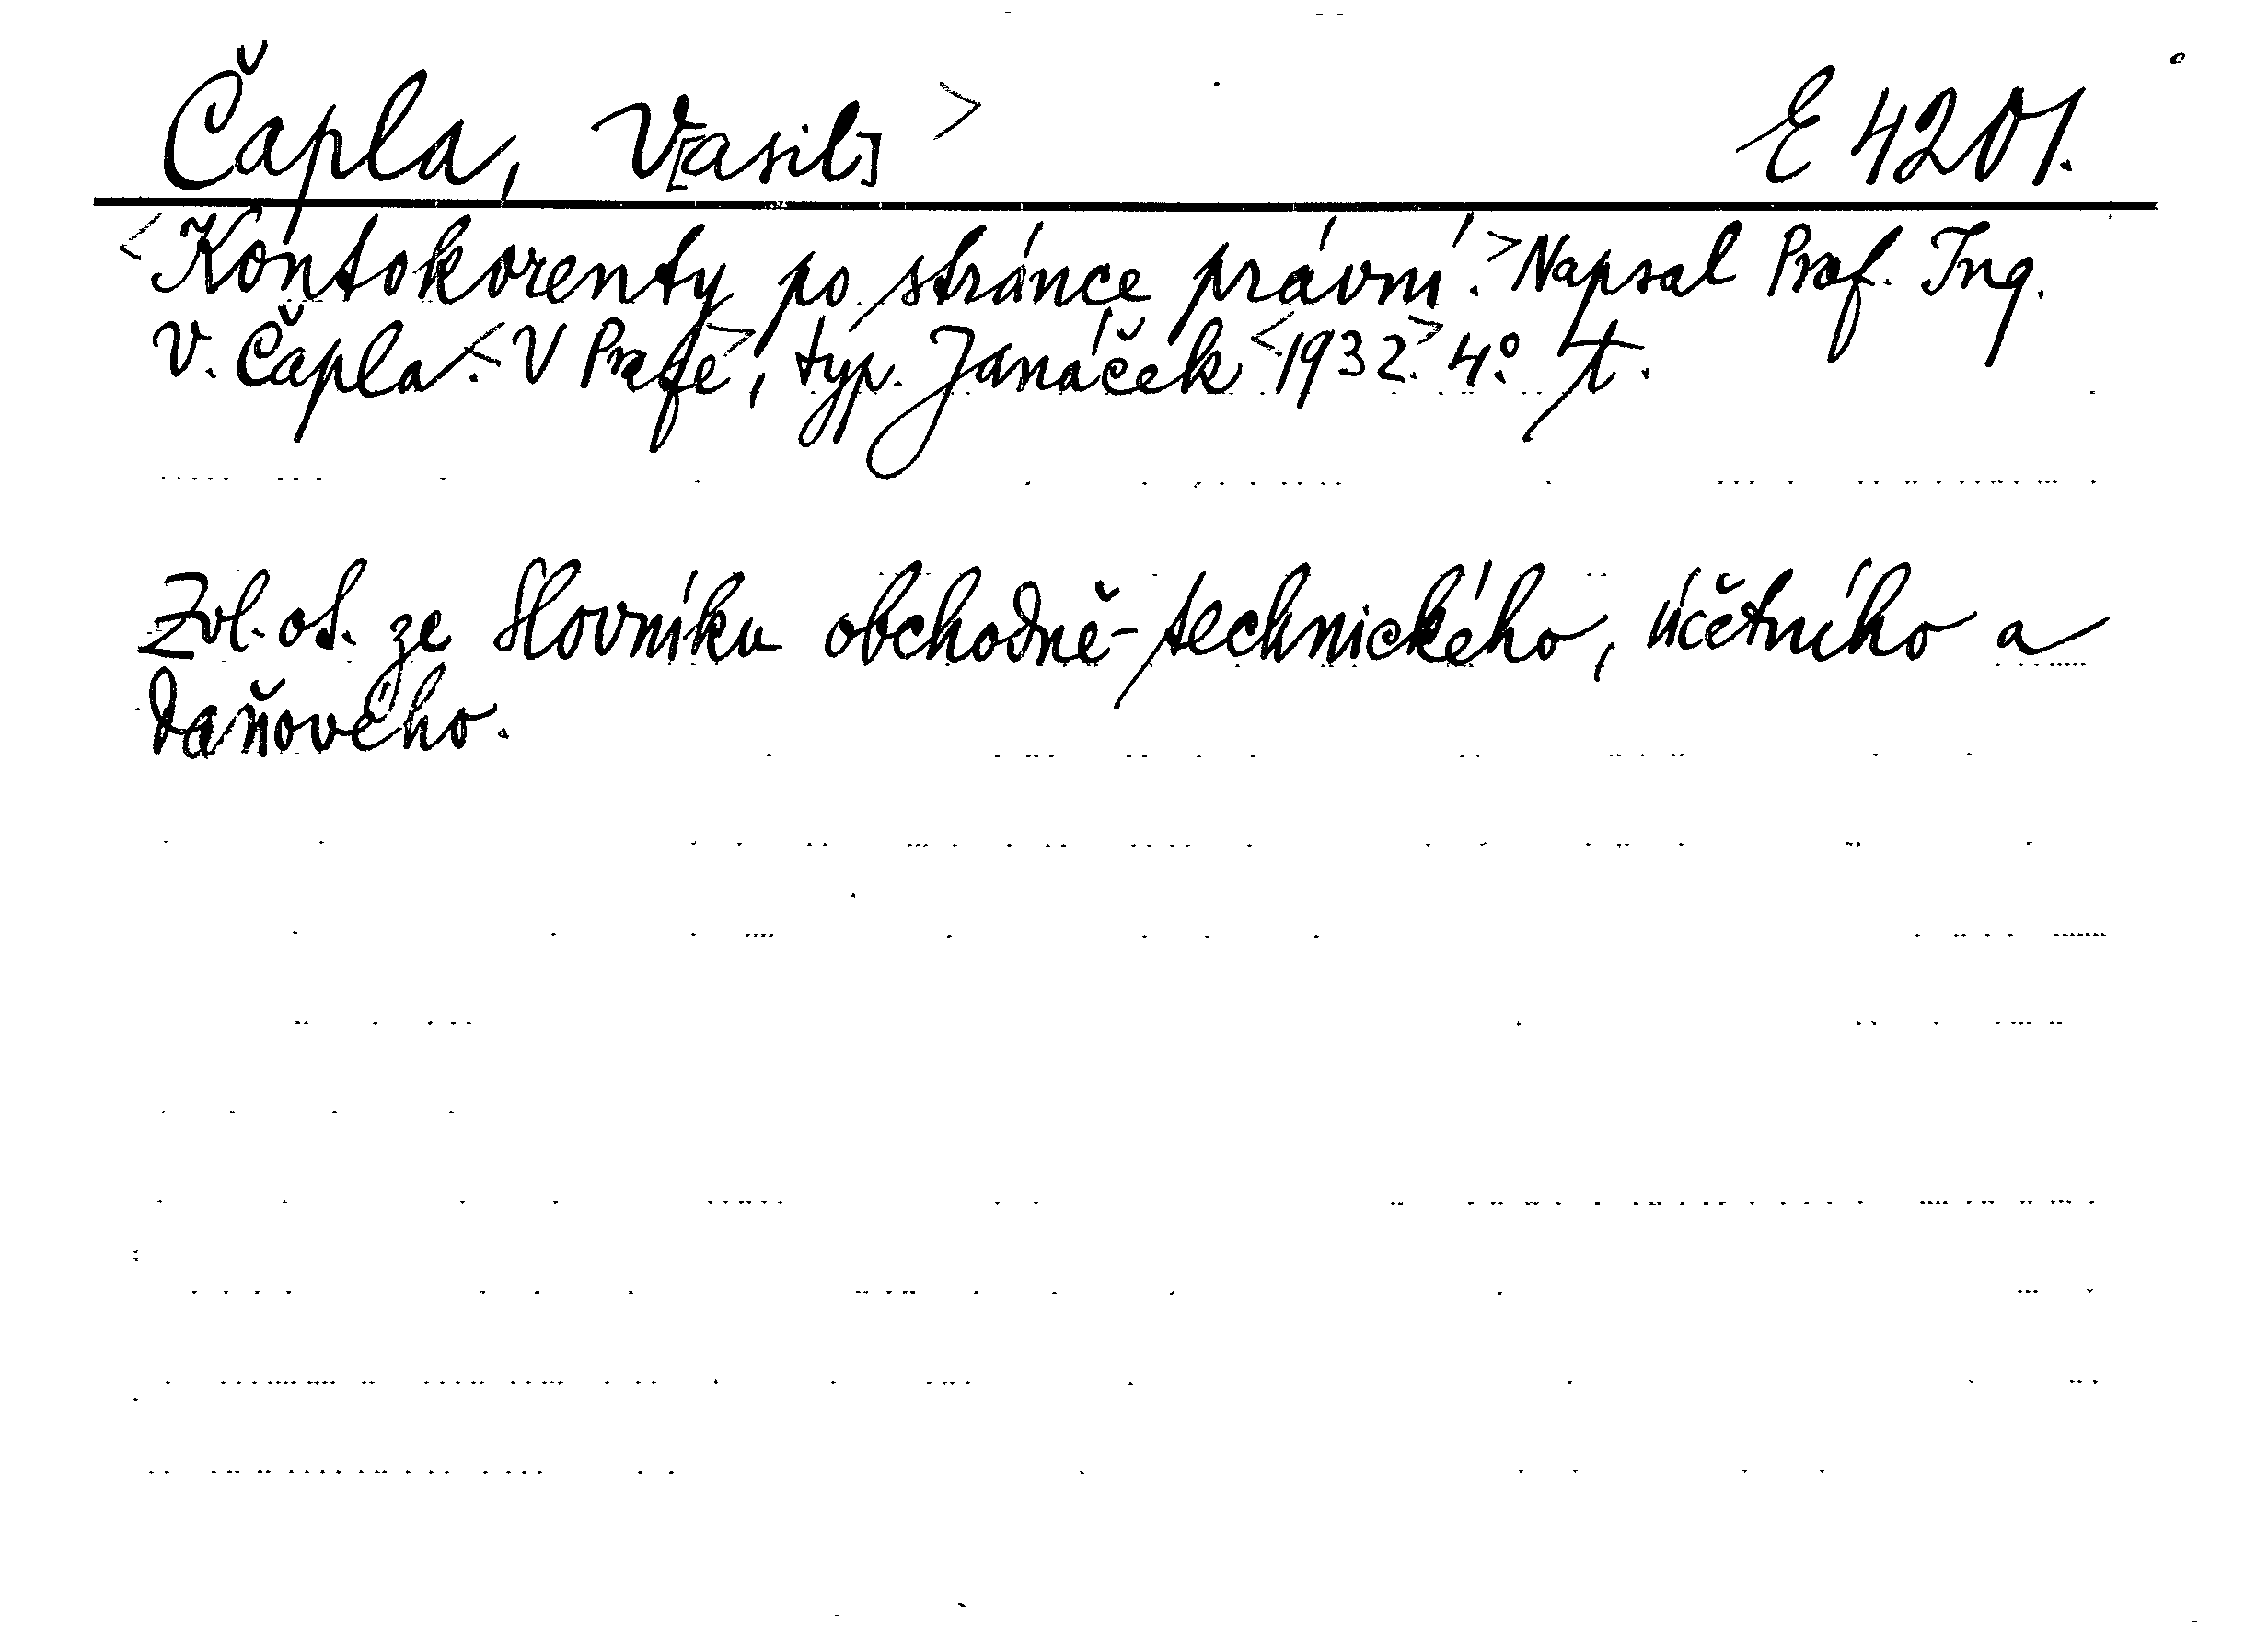 Čapla, V[asil] > E 4201.
<Kontokorenty po stránce právní.> Napsal Prof. Ing.
V. Čapla.< V Praze>, typ. Janáček <1932.> 4° t.
Zvl. ot. ze Slovníku obchodně-technického, účetního a
daňového.